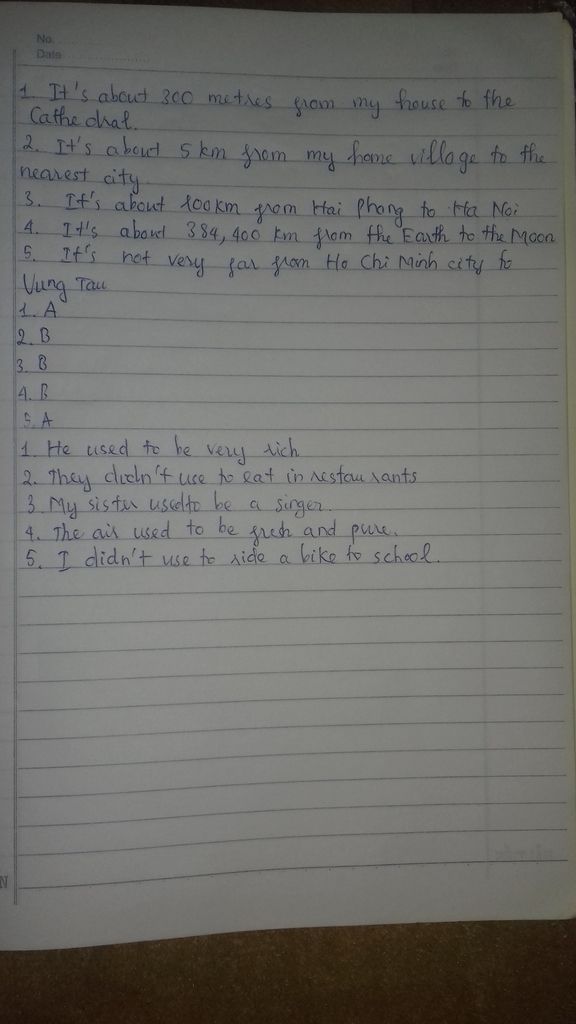 No.
Date
1. It's about 300 metres from my house to the
Cathedral.
2. It's about 5 km from my home village to the
nearest city
3. It's about 100km from Hai Phong to Ha Noi
4. It's about 384,400 km from the Earth to the Moon
5. It's not very far from Ho Chi Minh city to
Vung Tau
1. A
2. B
3. B
4. B
5. A
1. He used to be very rich
2. They didn't use to eat in restaurants
3. My sister used to be a singer.
4. The air used to be fresh and pure.
5. I didn't use to ride a bike to school.